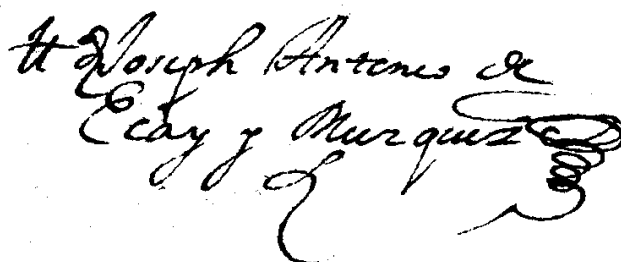 Joseph Antonio de
Ecay y Murquiz